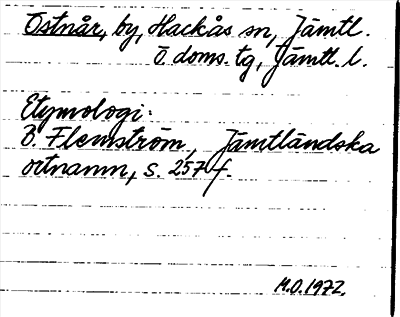 Östnår, by, Hackås sn, Jämtl.
Ö. doms. tg, Jämtl. l.
Etymologi:
B. Flemström, Jämtländska
ortnamn, s. 257 f.
M.O. 1972.